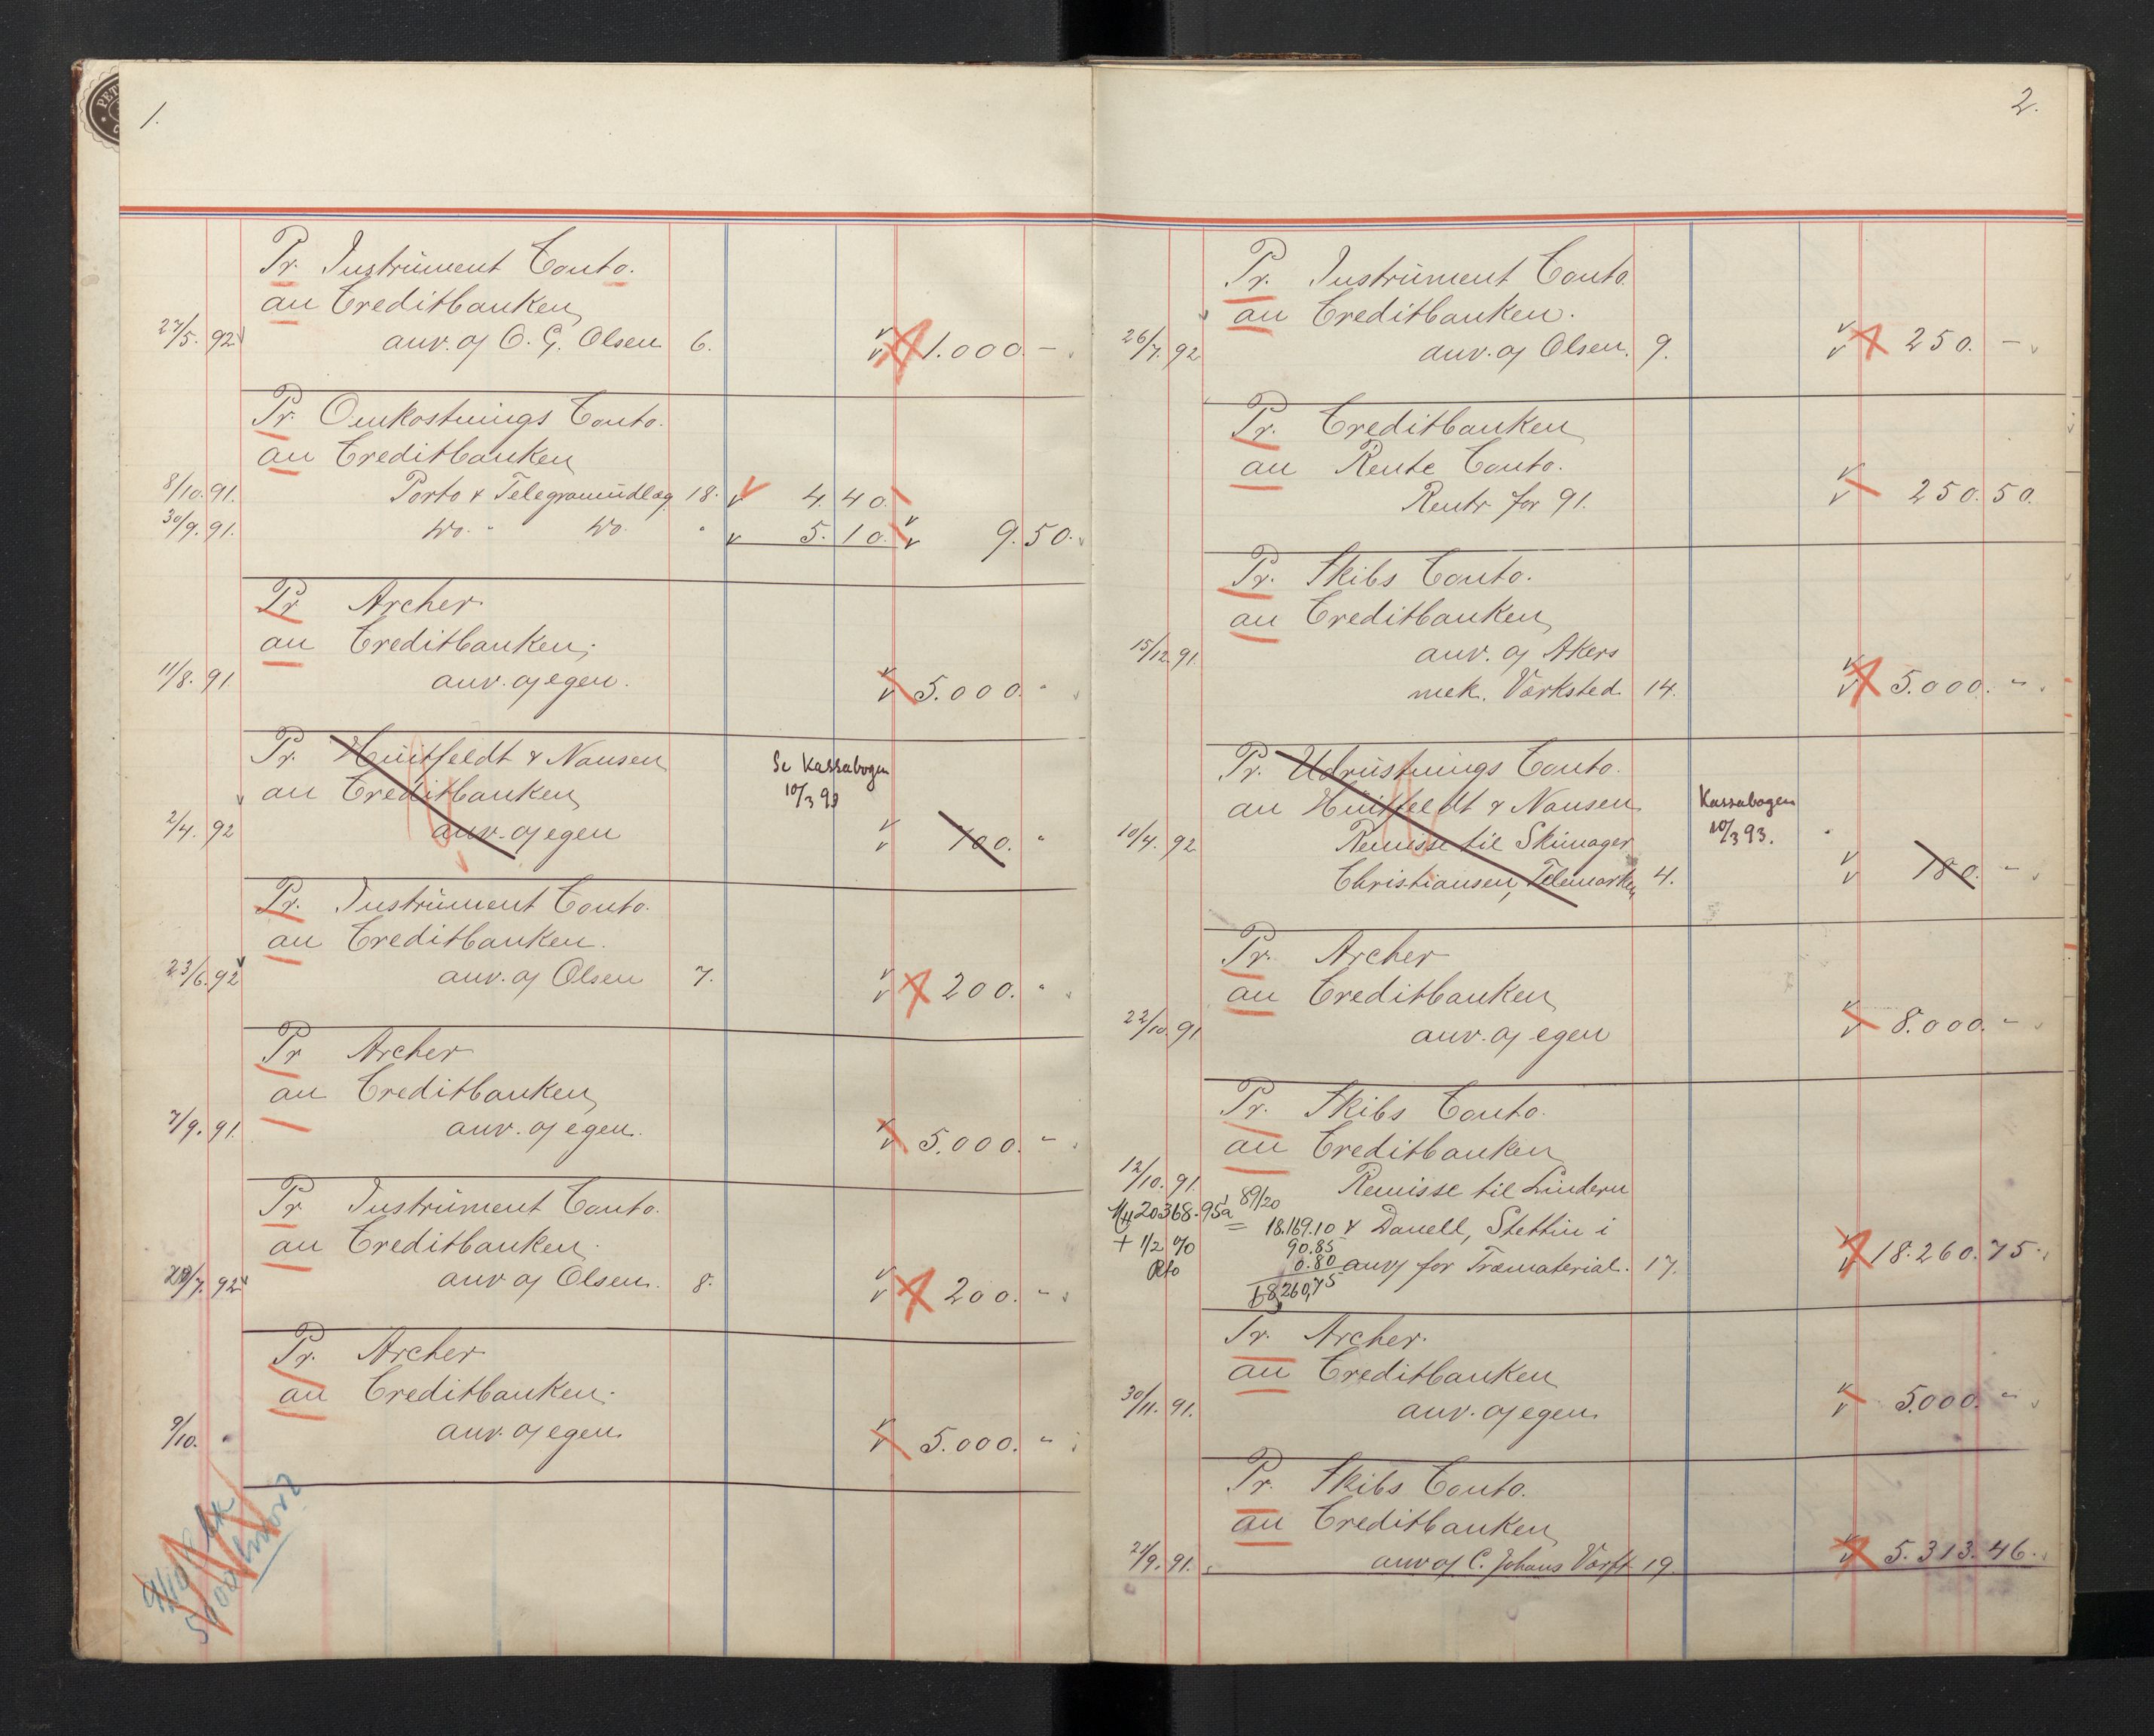 1.
Pr. Instrument Conto.
an Creditbanken
27/5. 92 anv. af O. G. Olsen 6. 1.000. -
Pr. Omkostnings Conto.
an Creditbanken
8/10. 91. Porto & Telegramudlæg 18. 4. 40.
30/9. 91. Do. " Do. " 5. 10. 9. 50.
Pr Archer
an Creditbanken
11/8. 91. anv. af egen. 5.000. "
Pr. Huitfeldt & Nansen
an Creditbanken
Se Kassabogen
10/3 93
2/4. 92 anv. af egen 100. "
Pr. Instrument Conto.
an Creditbanken.
23/6. 92 anv. af Olsen 7. 200. "
Pr Archer
an Creditbanken
7/9. 91. anv. af egen. 5.000. "
Pr Instrument Conto.
an Creditbanken.
/7. 92 anv af Olsen. 8. 200. "
Pr. Archer
an Creditbanken.
9/10. " anv. af egen. 5.000. "
5000
2.
Pr. Instrument Conto
an Creditbanken.
26/7. 92 anv. af Olsen. 9. 250. -
Pr. Creditbanken
an Rente Conto.
Rentr for 91. 250. 50.
Pr. Skibs Conto.
an Creditbanken
15/12. 91. anv. af Akers
mek. Værksted. 14. 5.000. "
Pr. Udrustnings Conto.
an Huitfeldt & Nansen
Kassabogen
10/3 93.
10/4. 92 Remisse til Skimager
Christiansen, Telemarken 4. 180. "
Pr. Archer
an Creditbanken
22/10. 91 anv. af egen 8.000. "
Pr. Skibs Conto.
an Creditbanken
12/10. 91. Remisse til Lindern
20368. 95 à 89/20
= 18.169.10 & Danell, Stettin i
+ 1/2 % 90.85
Pto 0.80 anv for Træmaterial. 17. 18.260. 75.
18260,75
Pr. Archer.
an Creditbanken
30/11. 91. anv. af egen. 5.000. "
Pr. Skibs Conto.
an Creditbanken
21/9. 91. anv af C. Johans Værft 19. 5.313. 46.